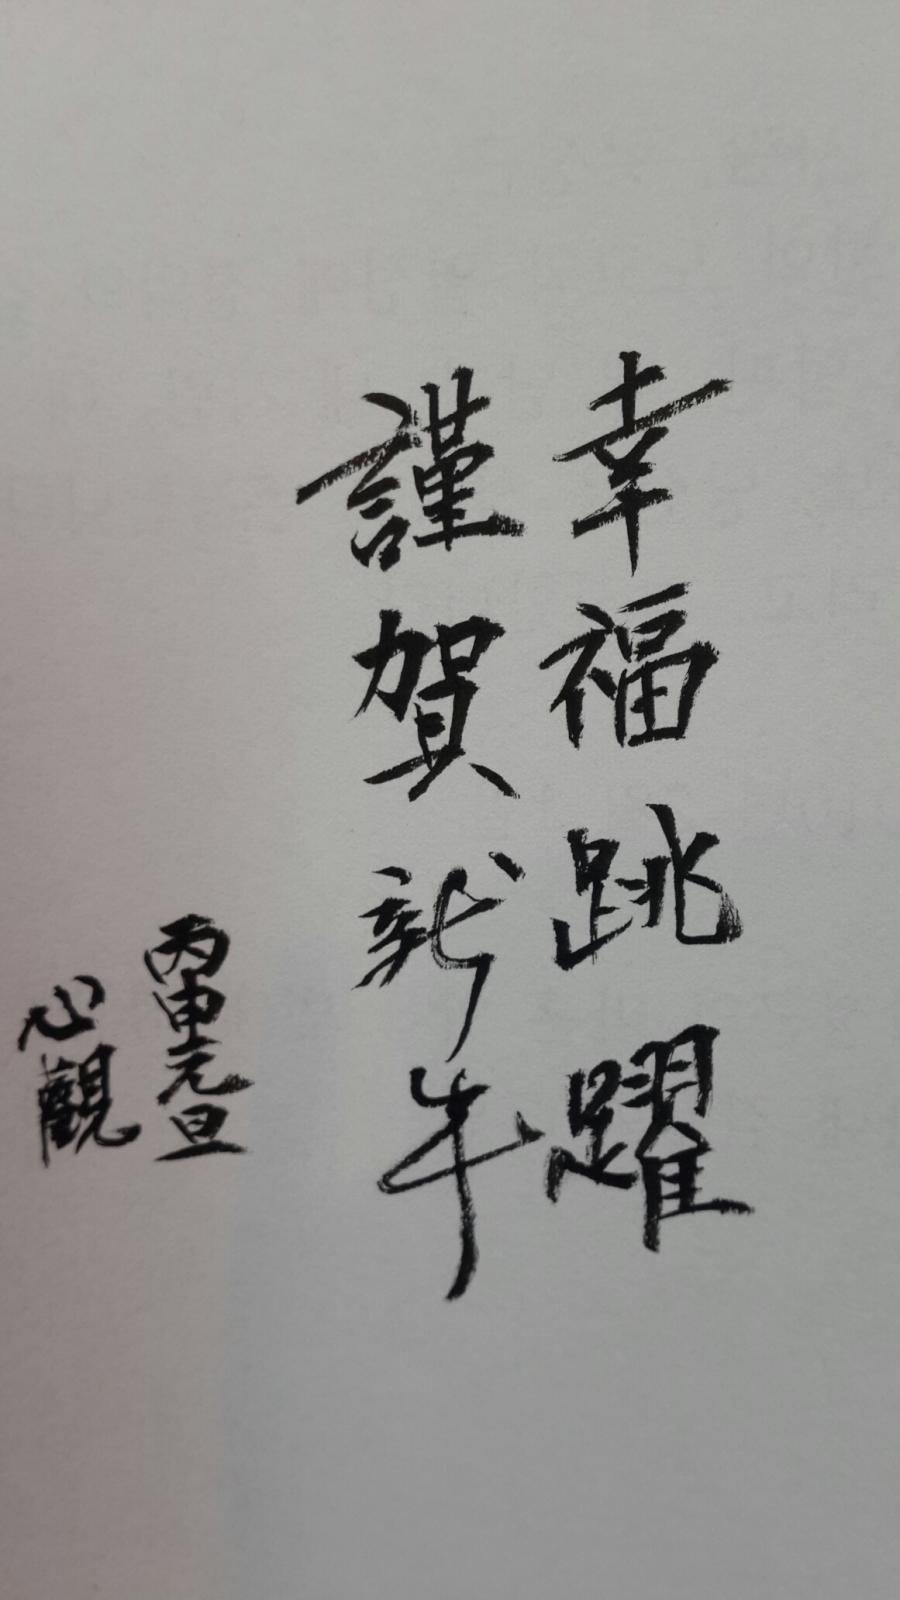 幸福跳躍
謹賀新年
丙申元旦
心觀